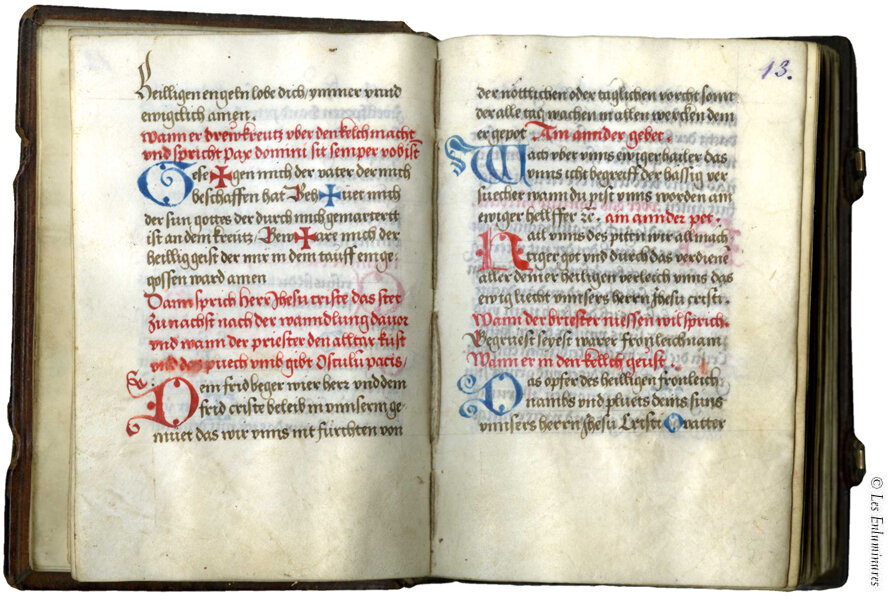 heilligen engeln lobe dich ymmer vnnd
ewigclich amen.
wann er drew kreutz vber den kelch macht
vnd spricht pax domini sit semper vobist
Gese✠gen mich der vater der mich
beschaffen hat Beh✠uet mich
der sun gottes der durch mich gemartertt
ist an dem kreutz Bew✠are mich der
heillig geist der mir in dem tauff einge
gossen ward amen
Dann sprich herr Jhesu criste das stet
Zu nachst nach der wanndlung dauor
vnd wann der priester den alltar kust
vnd das puech vmb gibt Osculu pacis
Dein frid beger wier herr vnd dein
frid criste beleib in vnnserm ge
müet das wir vnns nit fürchten von
13.
der nöttlichen oder täglichen vorcht sonn
der alle tag wachen in allen wercken dein
er gepot. Am annder gebet.
Wach vber vnns ewiger hailer das
vnns icht begreiff der hässig ver
suecher wann du pist vnns worden am
ewiger hellffer ꝛc. am annder pet.
Hail vnns des pitten wir allmäch
tiger got vnd durch das verdiene
aller deiner heiligen verleich vnns das
ewig liecht vnnsers herrn Jhesu cristi.
Wann der briester niessen wil sprich.
Begruest seyest warer fronleichnam
Wann er in den kellch geust.
Das opfer des heilligen fronleich
nambs vnd pluets deins suns
vnnsers herrn Jhesu Cristi O vatter
© Les Enluminures